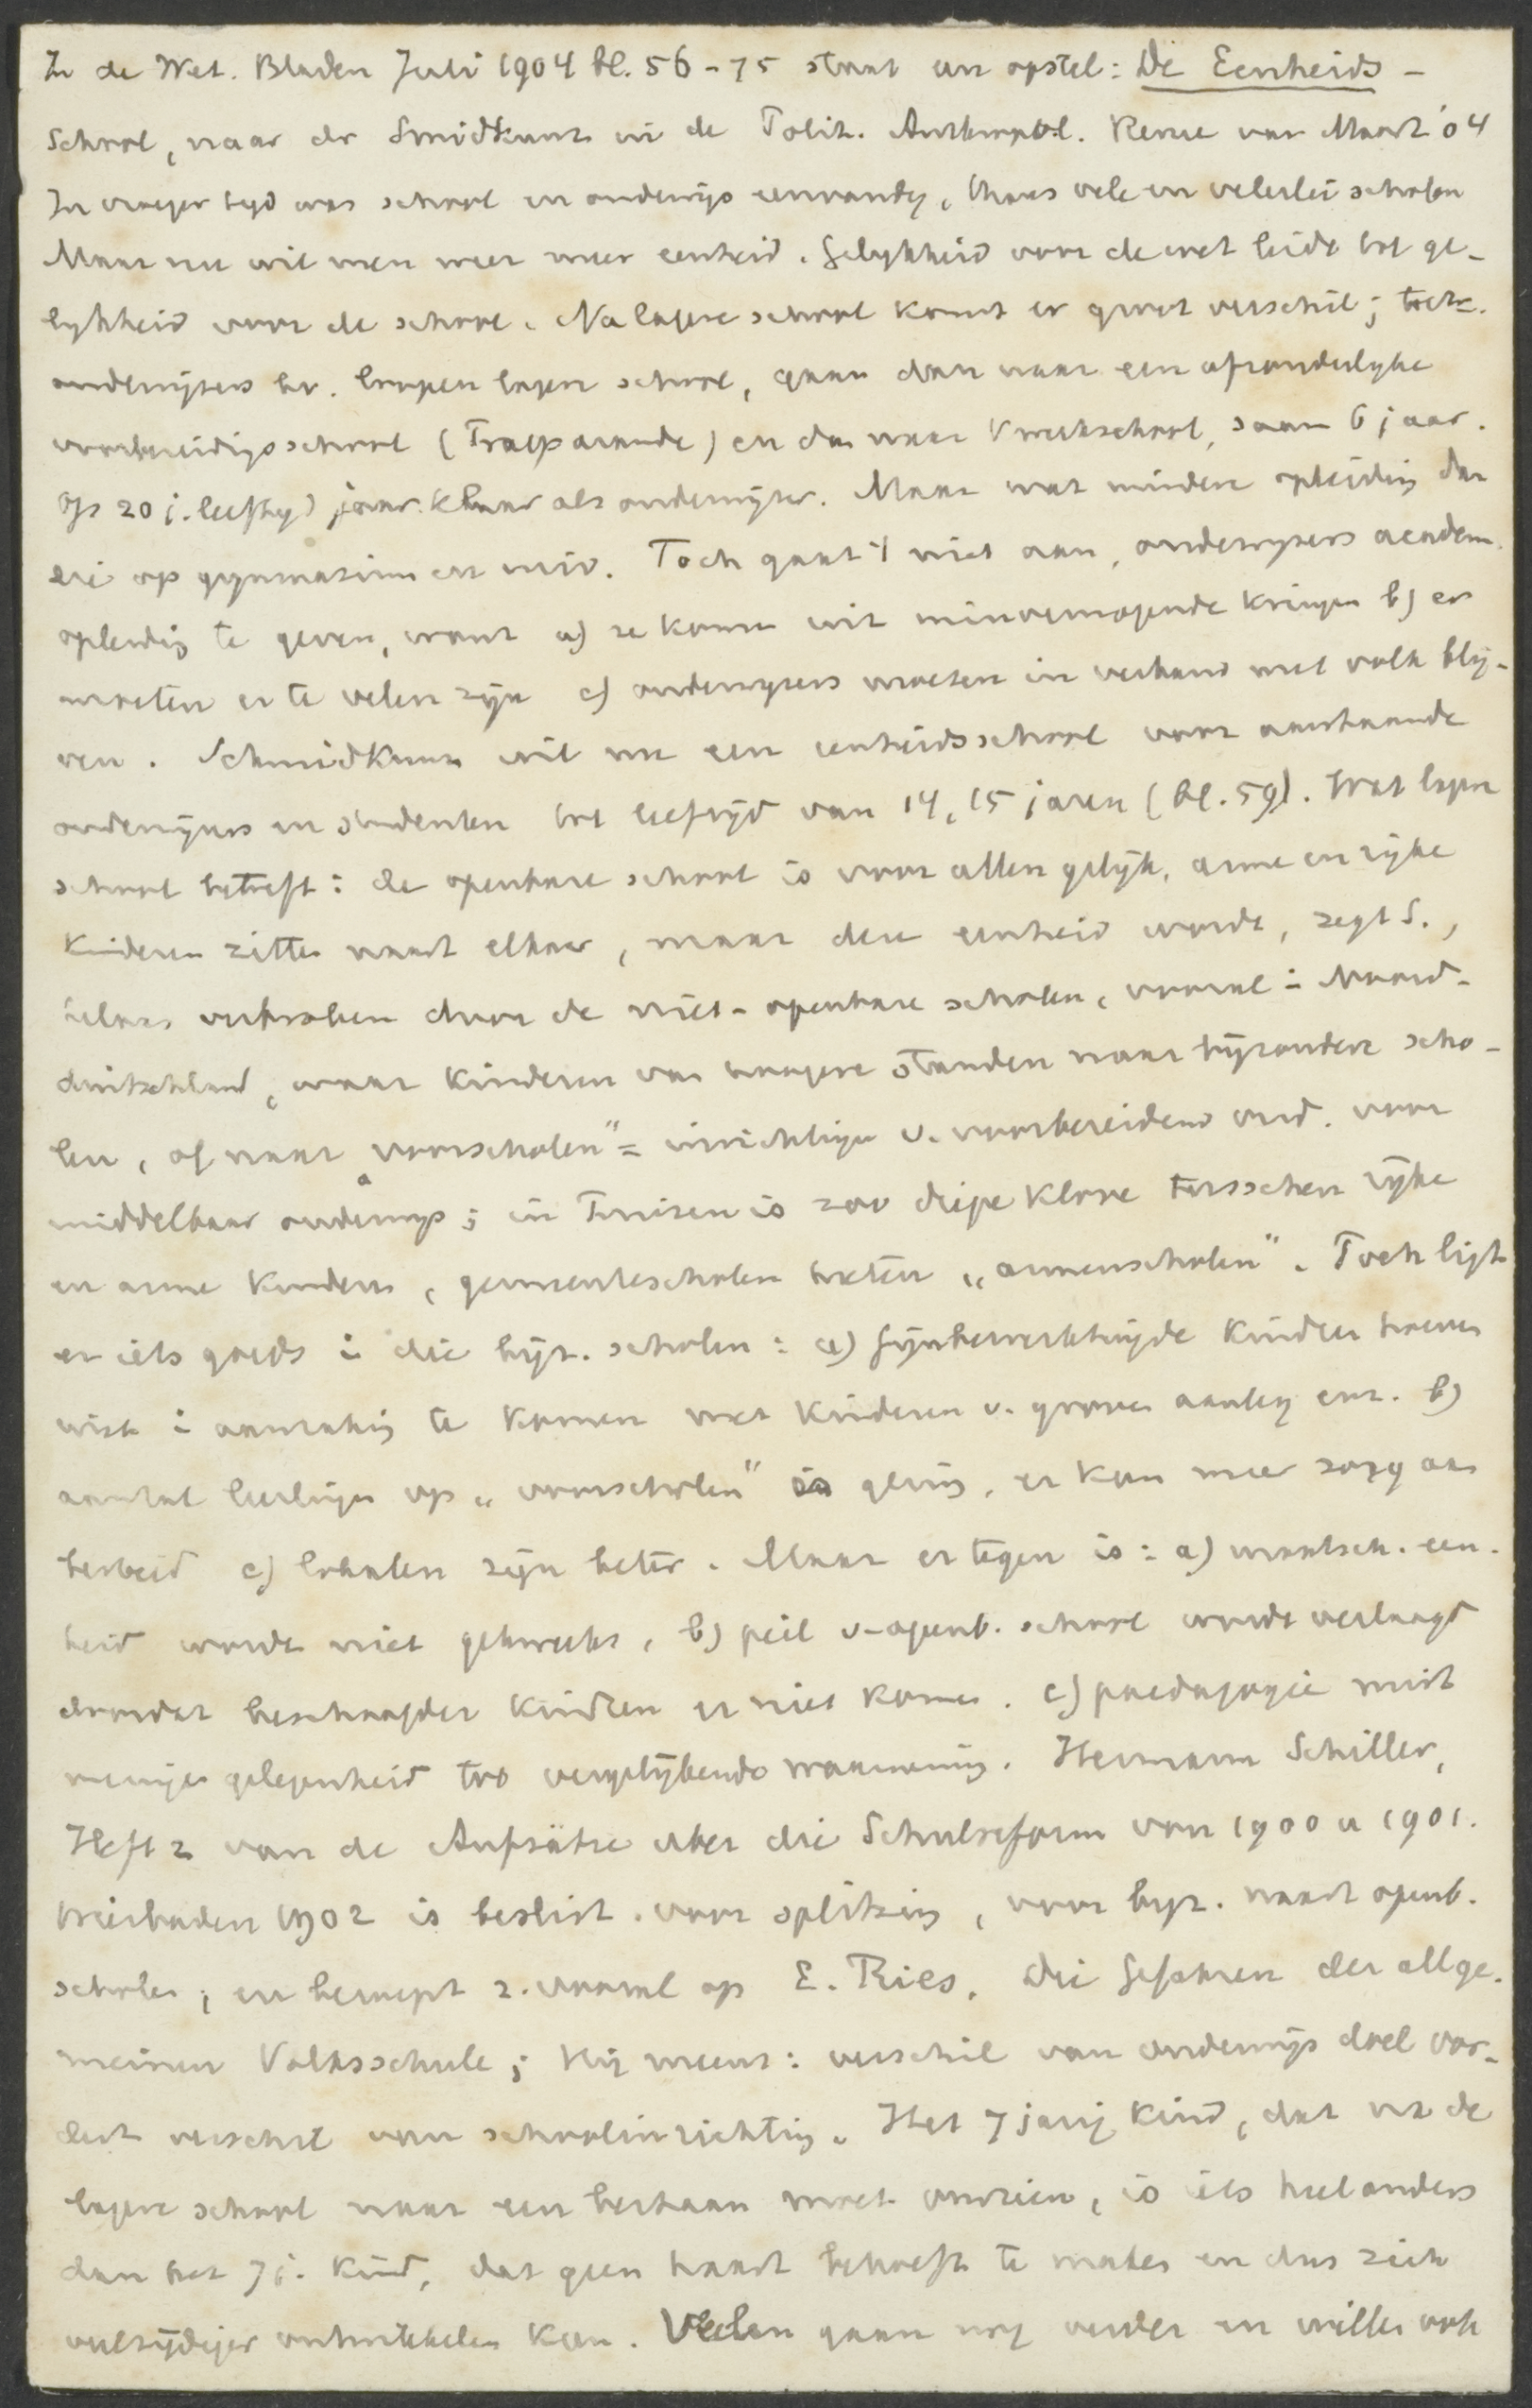 In de Wet. Bladen Juli 1904 bl. 56-75 staat een opstel: De Eenheids-
school, naar dr Smidkunz in de Polit. Anthropol. Revue van Maart '04
In vroeger tyd was school en onderwys eenvoudig, thans vele en velerlei scholen
Maar nu wil men weer meer eenheid. Gelykheid voor de wet leidt tot ge-
lykheid voor de school. Na lagere school komt er groot verschil;
onderwijzers bv. loopen lagere school, gaan dan naar een afzonderlyke
voorbereidingsschool (Praeparande) en dan naar Kweekschool, saam 6 jaar.
Op 20 j. leeftyd klaar als onderwijzer. Maar wat mindere opleiding dan
die op gymnasium en univ. Toch gaat 't niet aan, onderwyzers academ.
opleiding te geven, want a) ze komen uit minvermogende kringen b) er
moeten er te velen zijn c) onderwyzers moeten in verband met volk blij-
ven. Schmidkunz wil nu een eenheidsschool voor aanstaande
onderwijzers en studenten tot leeftijd van 14, 15 jaren (bl. 59). Wat lagere
school betreft: de openbare school is voor allen gelijk, arme en rijke
kinderen zitten naast elkaar, maar deze eenheid wordt, zegt S.,
helaas verbroken door de niet-openbare scholen, vooral in Noord-
duitschland, waar kinderen van hoogere standen naar bijzondere scho-
len, of naar „voorscholen" = inrichtingen v. voorbereidend ond. voor
middelbaar onderwys; in Pruisen is zoo diepe klove tusschen rijke
en arme kinderen, gemeentescholen heeten „armenscholen". Toch ligt
er iets goeds in die bijz. scholen: a) fijnbewerktuigde kinderen hoeven
niet in aanraking te komen met kinderen v. groven aanleg enz. b)
aantal leerlingen op „voorscholen" is gering, er kan meer zorg aan
besteed c) lokalen zijn beter. Maar er tegen is: a) maatsch. een-
heid wordt niet gekweekt, b) peil v. openb. school wordt verlaagd
doordat beschaafder kinderen er niet komen. c) paedagogie mist
menige gelegenheid tot vergelijkende waarneming. Hermann Schiller,
Heft 2 van de Aufsätze über die Schulreform von 1900 u 1901.
Wiesbaden 1902 is beslist voor splitsing, voor byz. naast openb.
scholen, en beroept z. vooral op E. Ries, Die Gefahren der allge-
meinen Volksschule; Hij meent: verschil van onderwijs doel vor-
dert verschil van schoolinrichting. Het 7 jarig kind, dat na de
lagere school naar een bestaan moet omzien, is iets heel anders
dan het 7 j. kind, dat geen haast behoeft te maken en dus zich
veelzijdiger ontwikkelen kan. Velen gaan nog verder en willen ook